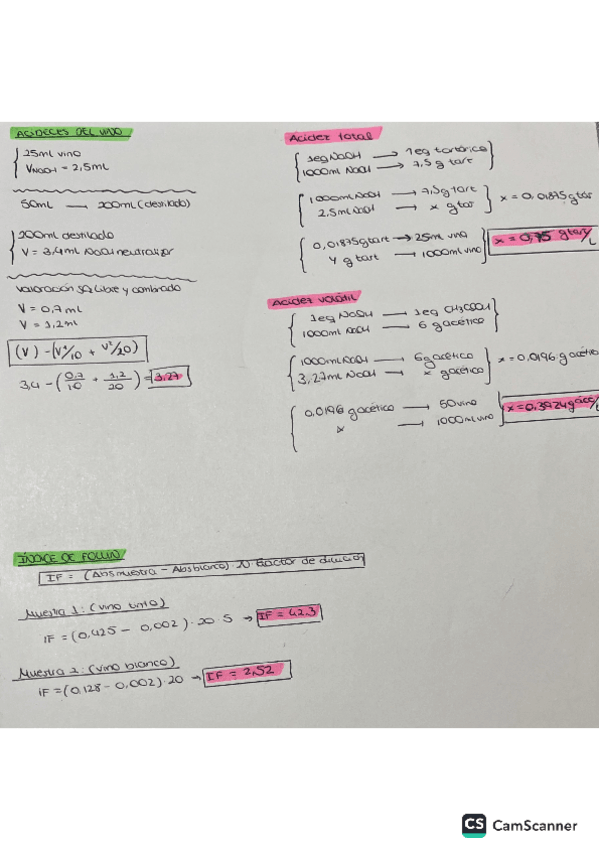 ACIDECES DEL VINO
25ml vino
VNaOH = 2,5ml
50ml → 200ml (destilado)
200ml destilado
V = 3,4ml NaOH neutralizar
Valoración SO2 libre y combinado
V = 0,7ml
V = 1,2ml
(V) - (V'/10 + V''/20)
3,4 - (0,7/10 + 1,2/20) = 3,27
Acidez total
1eq NaOH → 1eq tartárico
1000ml NaOH → 7,5g tart
1000ml NaOH → 7,5g tart
2,5ml NaOH → x g tar
x = 0,01875 g tar
0,01875g tart → 25ml vino
y g tart → 1000ml vino
x = 0,75 g tar/L
Acidez volátil
1eq NaOH → 1eq CH3COOH
1000ml NaOH → 6 g acético
1000ml NaOH → 6g acético
3,27ml NaOH → x g acético
x = 0,0196 g acético
0,0196 g acético → 50 vino
x → 1000ml vino
x = 0,3924 g acé/L
ÍNDICE DE FOLLIN
IF = (Abs muestra - Abs blanco) · 20 factor de dilución
Muestra 1: (vino tinto)
IF = (0,425 - 0,002) · 20 · 5 → IF = 42,3
Muestra 2: (vino blanco)
IF = (0,128 - 0,002) · 20 → IF = 2,52
CS CamScanner